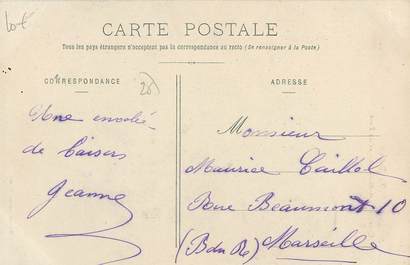 CARTE POSTALE
Tous les pays étrangers n'acceptent pas la correspondance au recto (Se renseigner à la Poste)
CORRESPONDANCE
ADRESSE
Une envolée
de baisers
Jeanne
Monsieur
Maurice Caillol
Rue Beaumont 10
(Bdu R) Marseille